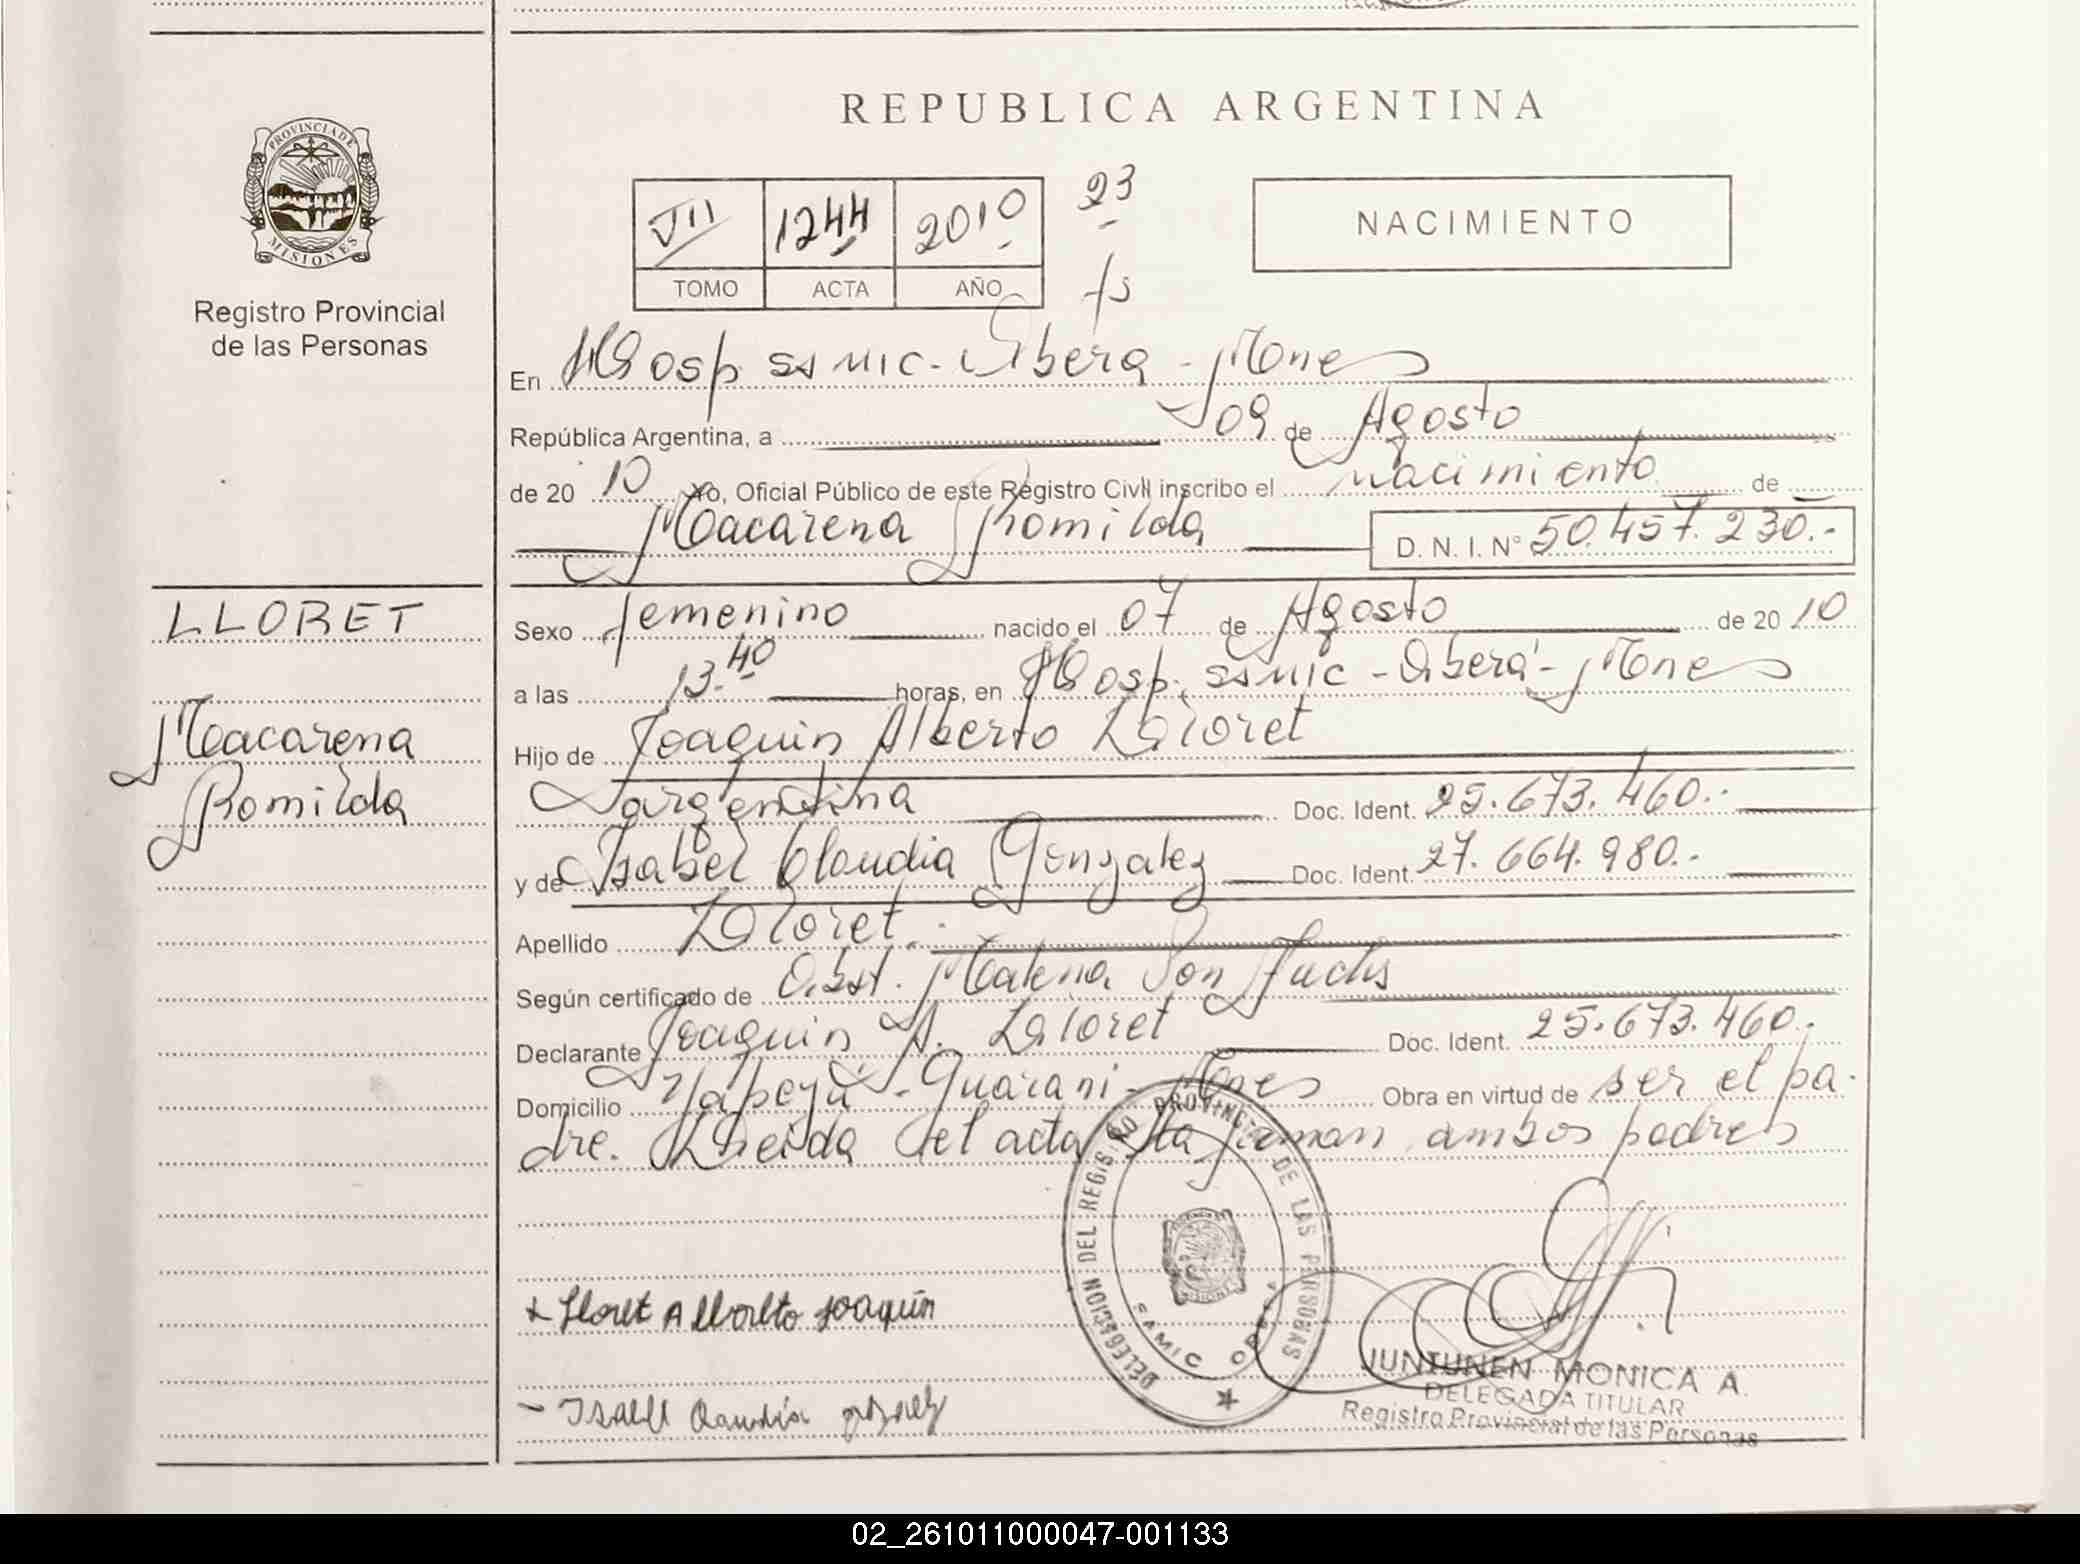 REPUBLICA ARGENTINA
PROVINCIA DE
MISIONES
Registro Provincial
de las Personas
VII 1244 2010 23
TOMO ACTA AÑO fs
NACIMIENTO
En Hosp. SAMIC - Oberá - Mnes
República Argentina, a 09 de Agosto
de 20 10 Yo, Oficial Público de este Registro Civil inscribo el nacimiento de
Macarena Romilda D. N. I. N° 50.457.230.-
LLORET
Macarena
Romilda
Sexo femenino nacido el 07 de Agosto de 20 10
a las 13.40 horas, en Hosp. SAMIC - Oberá - Mnes
Hijo de Joaquin Alberto Lloret
argentina Doc. Ident. 25.673.460.-
y de Isabel Claudia Gonzalez Doc. Ident. 27.664.980.-
Apellido Lloret.
Según certificado de Obst. Malena Von Fuchs
Declarante Joaquin A. Lloret Doc. Ident. 25.673.460.
Domicilio Yapeyú - Guarani - Mnes Obra en virtud de ser el pa-
dre. Leida el acta la firman ambos padres
DELEGACION DEL REGISTRO PROVINCIAL DE LAS PERSONAS
SAMIC OBERA
Lloret Alberto Joaquín
Isabel Claudia
JUNTUNEN MONICA A.
DELEGADA TITULAR
Registro Provincial de las Personas
02_261011000047-001133